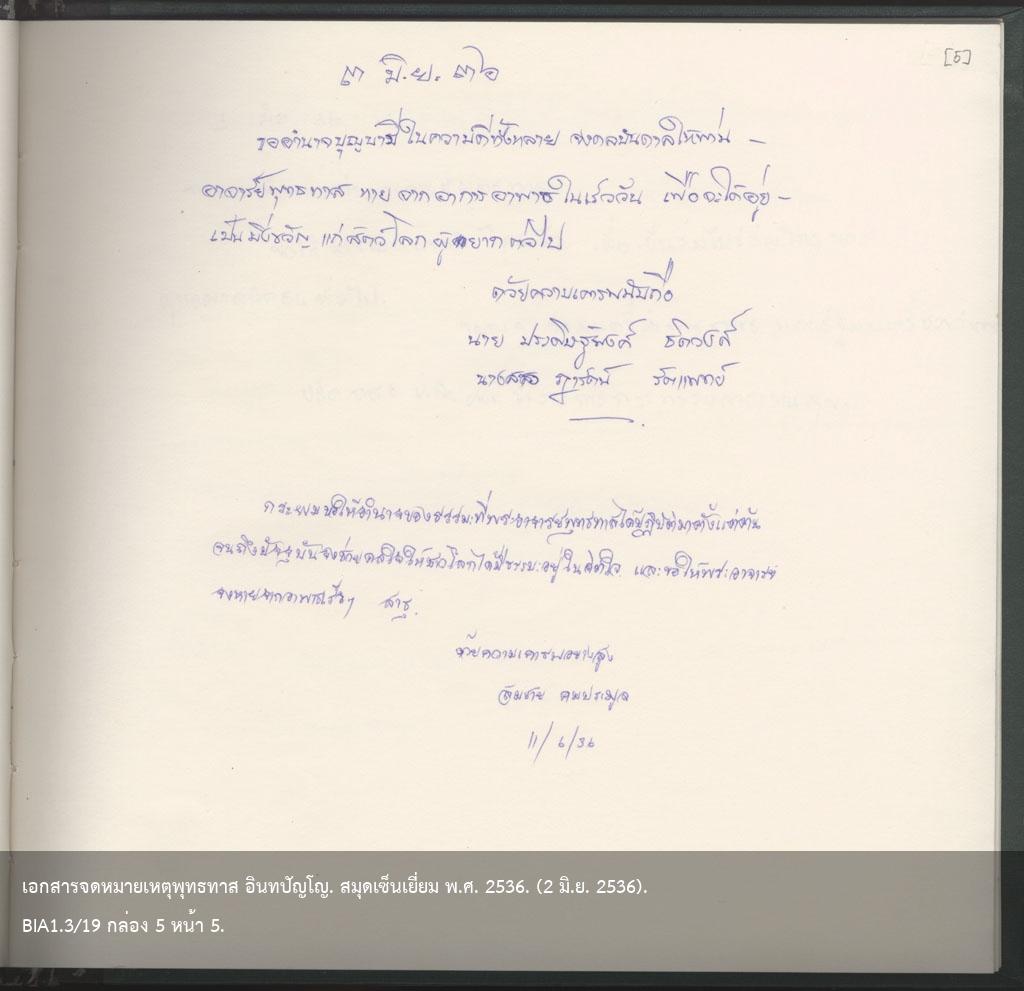 [5]
๓ มิ.ย. ๓๖
ขออำนาจบุญบารมีในความดีทั้งหลาย จงดลบันดาลให้ท่าน –
อาจารย์พุทธทาส หายจากอาการอาพาธในเร็ววัน เพื่อจะได้อยู่ –
เป็นมิ่งขวัญ แก่สัตว์โลกผู้ยากต่อไป
ด้วยความเคารพนับถือ
นาย ประดิษฐ์พงศ์
นางสาว
กระผมขอให้อำนาจของธรรมะที่พระอาจารย์พุทธทาสได้ปฏิบัติมาตั้งแต่ต้น
จนถึงปัจจุบันจงช่วยดลใจให้ชาวโลกได้มีธรรมะอยู่ในจิตใจ และขอให้พระอาจารย์
จงหายจากอาพาธเร็วๆ สาธุ.
ด้วยความเคารพอย่างสูง
11/6/36
เอกสารจดหมายเหตุพุทธทาส อินทปัญโญ. สมุดเซ็นเยี่ยม พ.ศ. 2536. (2 มิ.ย. 2536).
BIA1.3/19 กล่อง 5 หน้า 5.